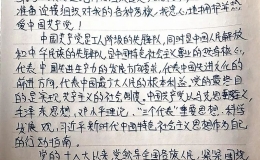 准备迎接组织对我的各种考察,我衷心地拥护并热
爱中国共产党!
中国共产党是工人阶级的先锋队,同时是中国人民解放
和中华民族的先锋队,是中国特色社会主义事业的领导核心,
代表中国先进生产力的发展方向要求,代表中国先进文化的
前进方向,代表中国最广大人民的根本利益。党的最终目
的是实现共产主义的社会制度,中国共产党以马克思主义列
毛泽东思想,邓小平理论,“三个代表”重要思想,科学
发展观,习近平新时代中国特色社会主义思想作为自己
的行动指南。
党的十八大以来,党领导全国各族人民,紧紧围绕